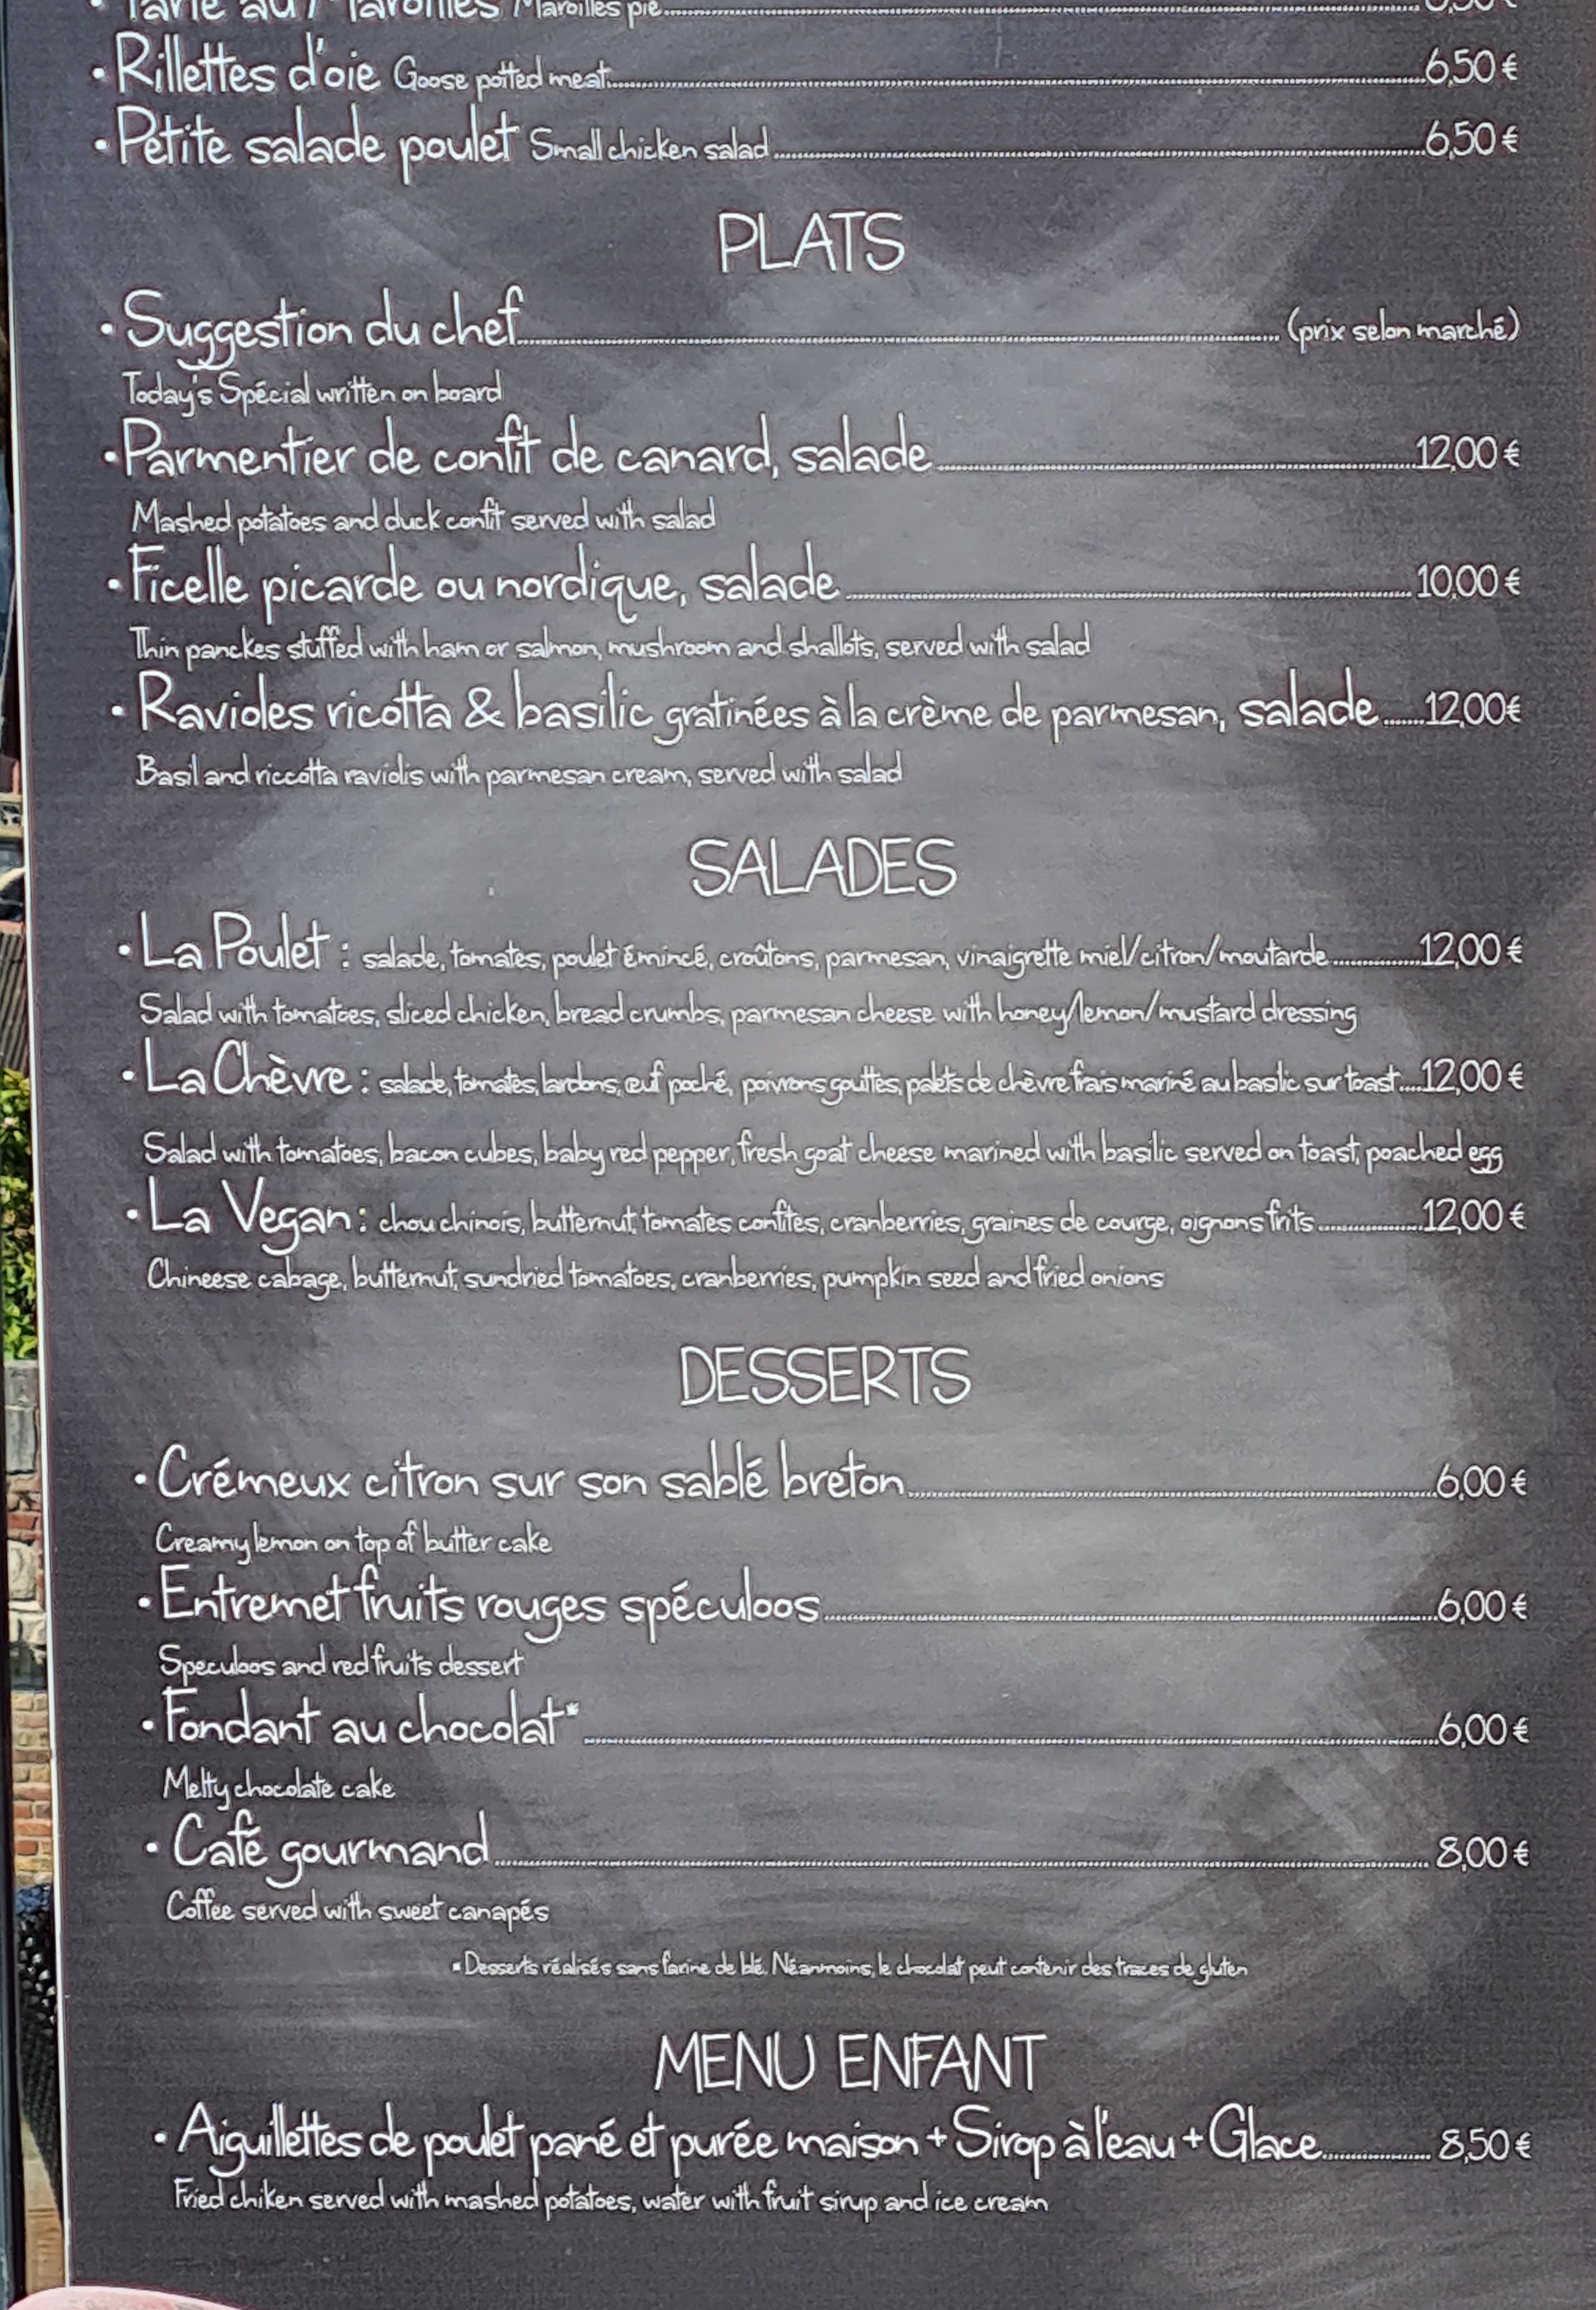 Tarte au Maroilles Maroilles pie
• Rillettes d'oie Goose potted meat 6,50 €
• Petite salade poulet Small chicken salad 6,50 €
PLATS
• Suggestion du chef (prix selon marché)
Today's Spécial written on board
• Parmentier de confit de canard, salade 12,00 €
Mashed potatoes and duck confit served with salad
• Ficelle picarde ou nordique, salade 10,00 €
Thin panckes stuffed with ham or salmon, mushroom and shallots, served with salad
• Ravioles ricotta & basilic gratinées à la crème de parmesan, salade 12,00€
Basil and riccotta raviolis with parmesan cream, served with salad
SALADES
• La Poulet : salade, tomates, poulet émincé, croûtons, parmesan, vinaigrette miel/citron/moutarde 12,00 €
Salad with tomatoes, sliced chicken, bread crumbs, parmesan cheese with honey/lemon/mustard dressing
• La Chèvre : salade, tomates, lardons, œuf poché, poivrons gouttes, palets de chèvre frais mariné au basilic sur toast 12,00 €
Salad with tomatoes, bacon cubes, baby red pepper, fresh goat cheese marined with basilic served on toast, poached egg
• La Vegan : chou chinois, butternut, tomates confites, cranberries, graines de courge, oignons frits 12,00 €
Chineese cabage, butternut, sundried tomatoes, cranberries, pumpkin seed and fried onions
DESSERTS
• Crémeux citron sur son sablé breton 6,00 €
Creamy lemon on top of butter cake
• Entremet fruits rouges spéculoos 6,00 €
Speculoos and red fruits dessert
• Fondant au chocolat* 6,00 €
Melty chocolate cake
• Café gourmand 8,00 €
Coffee served with sweet canapés
* Desserts réalisés sans farine de blé. Néanmoins, le chocolat peut contenir des traces de gluten
MENU ENFANT
• Aiguillettes de poulet pané et purée maison + Sirop à l'eau + Glace 8,50 €
Fried chiken served with mashed potatoes, water with fruit sirup and ice cream